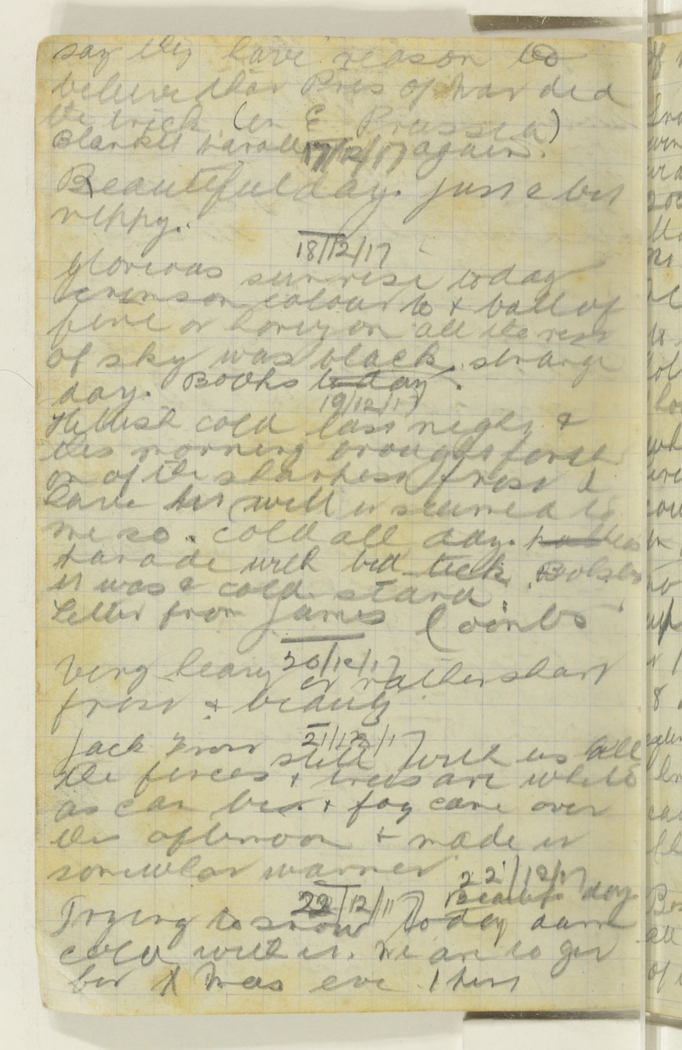 say they have reason to
believe that Pris of War did
the trick (in E Prussia)
Blanket parade again.
17/12/17
Beautiful day. just a bit
nippy.
18/12/17
Glorious sunrise today
crimson colour to & ball of
fire on horizon all the rest
of sky was black. strange
day. Books today.
19/12/17
Hellish cold last night &
this morning brought forth
on of the sharpest frost I
have but well it seemed to
me so. cold all day.
Parade with bed tick.
it was a cold stand
Letter from James Coombs
20/12/17
Very heavy or rather sharp
frost & beauty
21/12/17
Jack Frost still with us all
the fences & trees are white
as can be & fog came over
this afternoon & made it
somewhat warmer
22/12/17
Beautif day
22/12/17
Trying to snow today damn
cold with it. We are to get
our Xmas eve